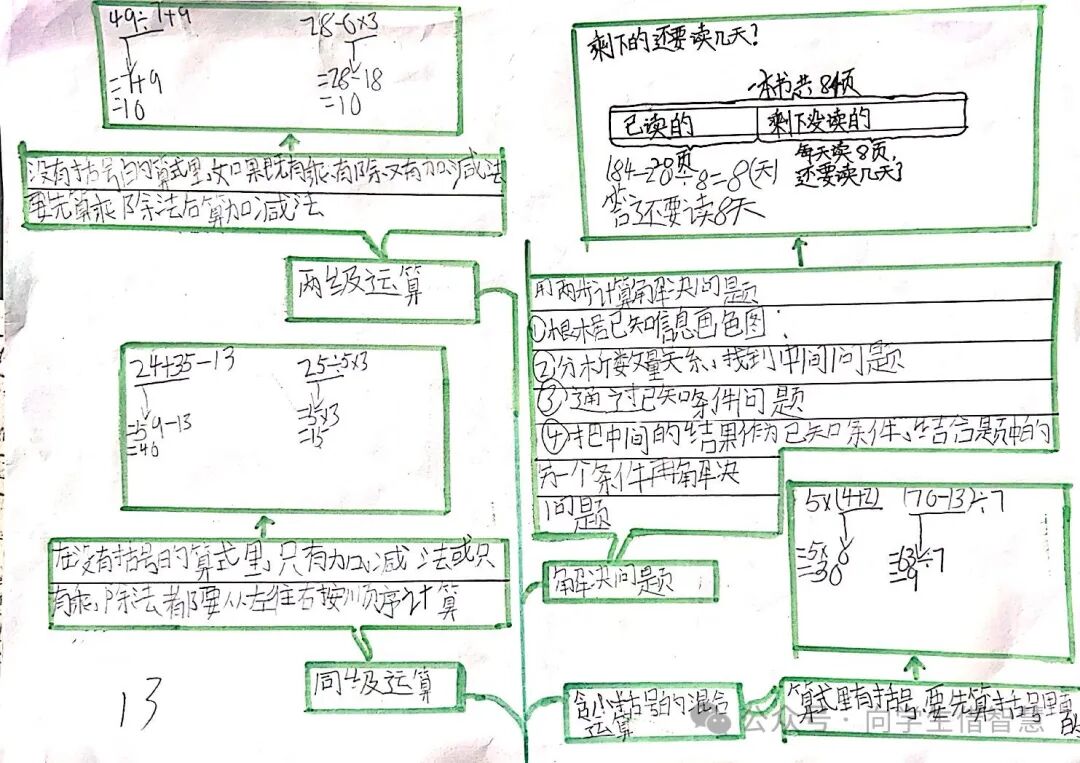 49÷7+9
=7+9
=10
28-6×3
=28-18
=10
没有括号的算式里,如果既有乘,有除,又有加减法
要先算乘除法后算加减法
两级运算
24+35-13
=59-13
=40
25÷5×3
=5×3
=15
在没有括号的算式里,只有加、减法或只
有乘、除法都要从左往右按顺序计算
同级运算
13
剩下的还要读几天?
一本书共84页
已读的
剩下没读的
28页
每天读8页,
还要读几天?
(84-20)÷8=8(天)
答:还要读8天
用两步计算解决问题
①根据已知信息画色图:
②分析数量关系、找到中间问题
③通过已知条件问题
④把中间的结果作为已知条件、结合题中的
另一个条件再解决
问题
解决问题
5×(4+2)
=5×6
=30
(76-13)÷7
=63÷7
=9
含小括号的混合
运算
算式里有括号,要先算括号里面
的
公众号·向学生借智慧